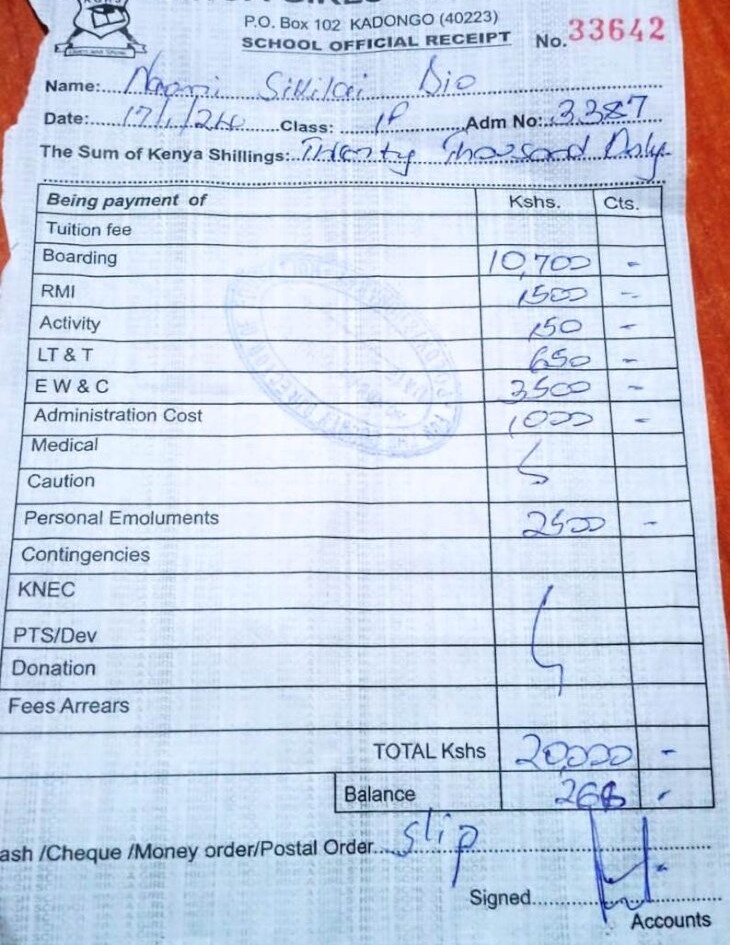 P.O. Box 102 KADONGO (40223)
SCHOOL OFFICIAL RECEIPT No. 33642
Name: Naomi
Date: 17/1/24 Class: 1P Adm No: 3387
The Sum of Kenya Shillings: Twenty Thousand Only
Being payment of Kshs. Cts.
Tuition fee
Boarding 10,700 -
RMI 1500 -
Activity 150 -
LT & T 650 -
E W & C 3500 -
Administration Cost 1000 -
Medical
Caution
Personal Emoluments 2500 -
Contingencies
KNEC
PTS/Dev
Donation
Fees Arrears
TOTAL Kshs 20,000 -
Balance -
ash /Cheque /Money order/Postal Order slip
Signed
Accounts